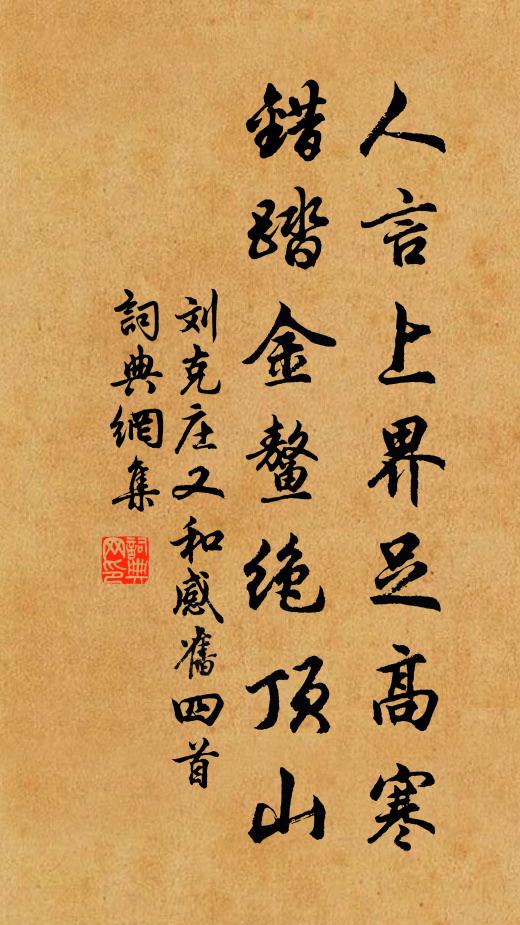 人言上界足高寒
錯踏金鳌绝顶山
刘克庄又和感舊四首
詞典網集
詞典网印